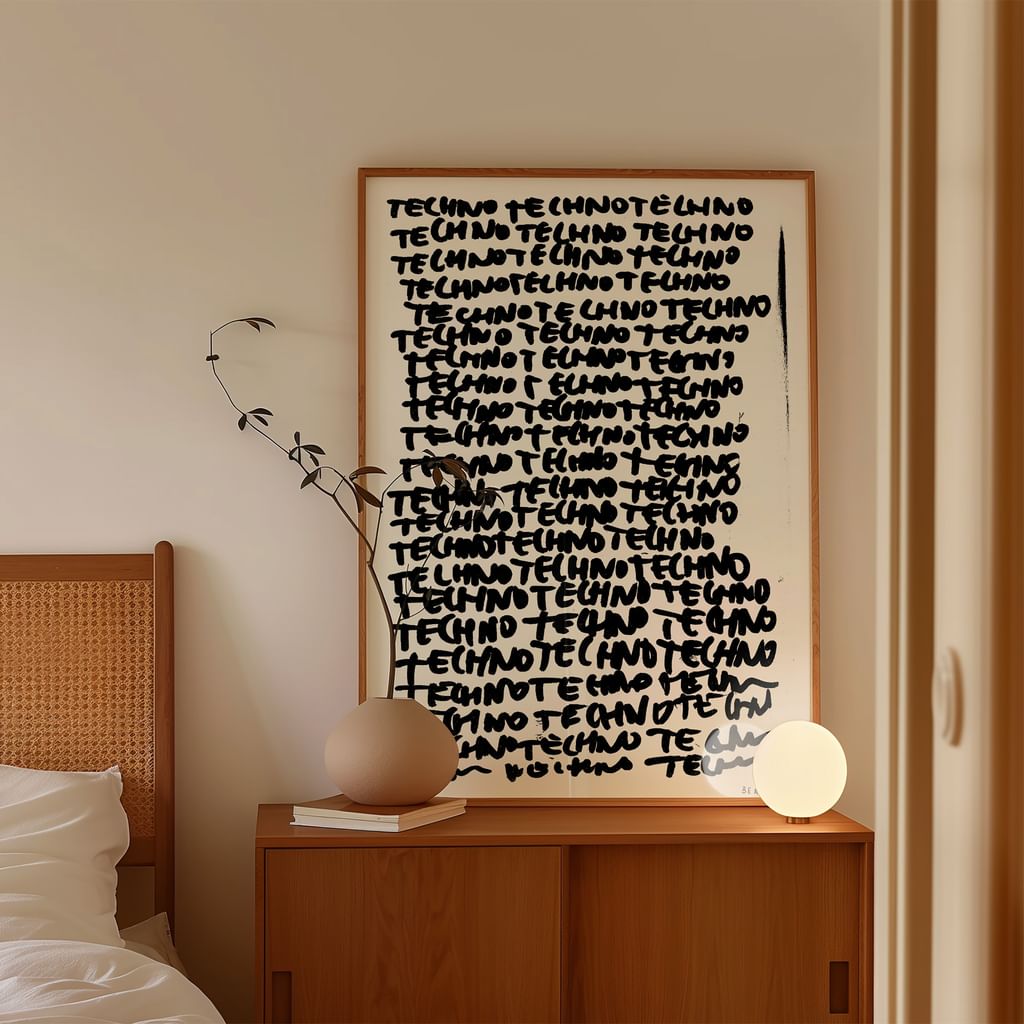 TECHNO TECHNO TECHNO
TECHNO TECHNO TECHNO
TECHNO TECHNO TECHNO
TECHNO TECHNO TECHNO
TECHNO TECHNO TECHNO
TECHNO TECHNO TECHNO
TECHNO TECHNO
TECHNO TECHNO TECHNO
TECHNO TECHNO TECHNO
TECHNO TECHNO TECHNO
TECHNO TECHNO TECHNO
TECHNO TECHNO TECHNO
TECHNO TECHNO TECHNO
TECHNO TECHNO TECHNO
TECHNO TECHNO TECHNO
TECHNO TECHNO TECHNO
TECHNO TECHNO TECHNO
TECHNO TECHNO TECHNO
TECHNO TECHNO
CHNO TECHNO TECHN
CHNO TECHNO TE
TE